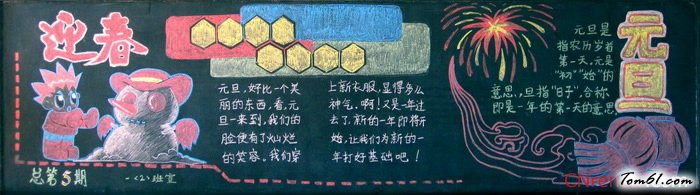 迎春
总第5期
一(2)班宣
元旦,好比一个美
丽的东西,看,元
旦一来到,我们的
脸便有了灿烂
的笑容。我们穿
上新衣服,显得多么
神气。啊!又是一年过
去了,新的一年即将开
始,让我们为新的一
年打好基础吧!
元旦是
指农历岁首
第一天,元是
"初""始"的
意思,旦指"日子",合称
即是一年的第一天的意思
元旦
Tom61.com